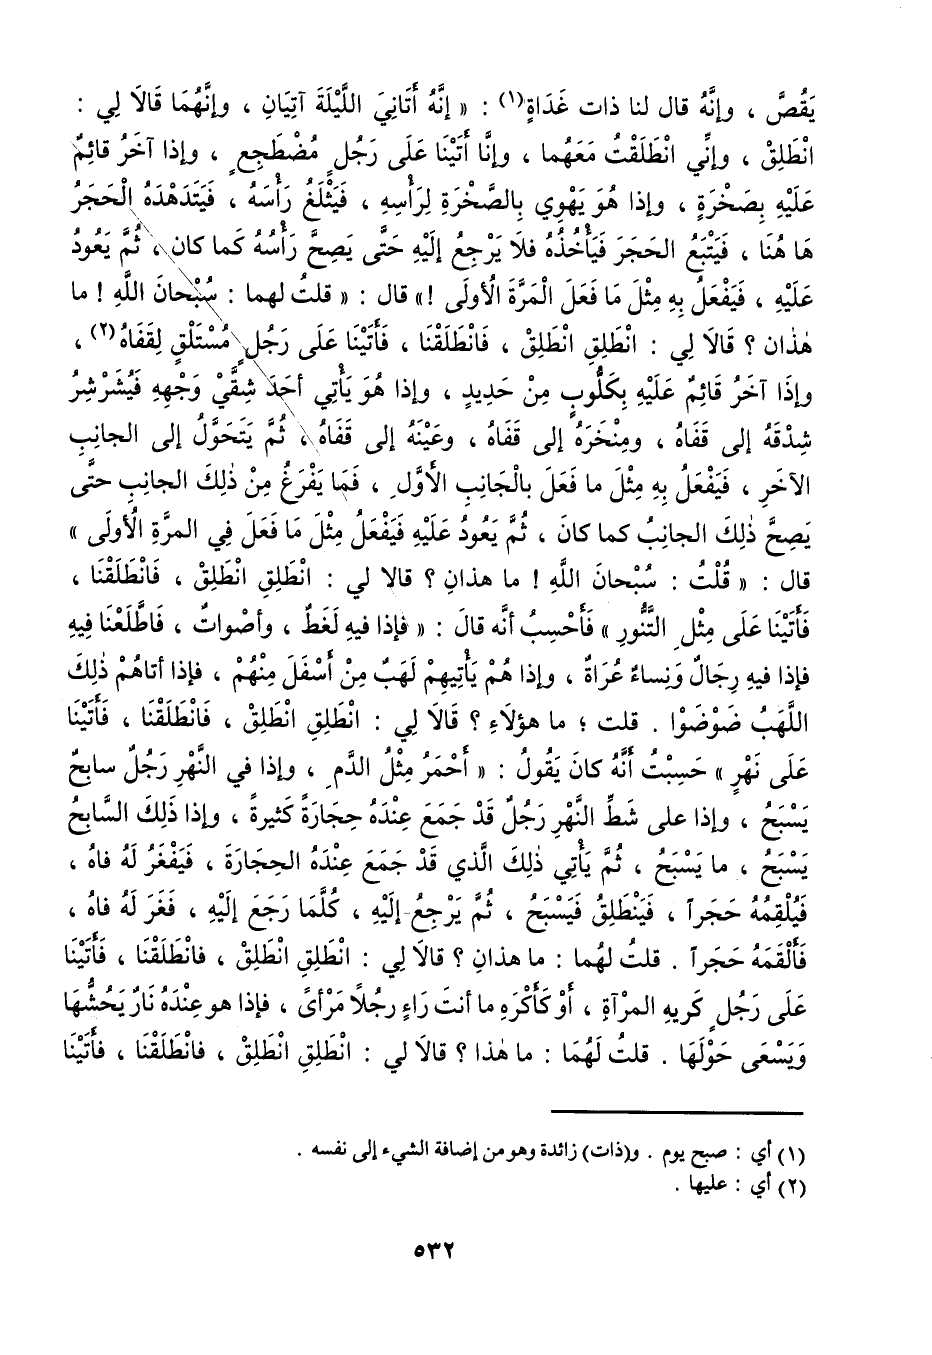 يَقُصَّ ، وإنَّهُ قال لنا ذات غَدَاةٍ(١) : « إنَّهُ أَتَانِيَ اللَّيْلَةَ آتِيَانِ ، وإنَّهُمَا قَالَا لِي :
انْطَلِقْ ، وإنِّي انْطَلَقْتُ مَعَهُما ، وإنَّا أَتَيْنَا عَلَى رَجُلٍ مُضْطَجِعٍ ، وإذا آخَرُ قائِمٌ
عَلَيْهِ بِصَخْرَةٍ ، وإذا هُوَ يَهْوِي بِالصَّخْرَةِ لِرَأْسِهِ ، فَيَثْلَغُ رَأْسَهُ ، فَيَتَدَهْدَهُ الْحَجَرُ
هَا هُنَا ، فَيَتْبَعُ الحَجَرَ فَيَأْخُذُهُ فلَا يَرْجِعُ إلَيْهِ حَتَّى يَصِحَّ رَأْسُهُ كَما كان ، ثُمَّ يَعُودُ
عَلَيْهِ ، فَيَفْعَلُ بِهِ مِثْلَ مَا فَعَلَ الْمَرَّةَ الْأُولَى !» قال : « قلتُ لهما : سُبْحانَ اللَّهِ ! ما
هٰذان ؟ قَالَا لِي : انْطَلِقِ انْطَلِقْ ، فَانْطَلَقْنَا ، فَأَتَيْنَا عَلَى رَجُلٍ مُسْتَلْقٍ لِقَفَاهُ(٢) ،
وإذَا آخَرُ قَائِمٌ عَلَيْهِ بِكَلُّوبٍ مِنْ حَدِيدٍ ، وإذا هُوَ يَأْتِي أحَدَ شِقَّيْ وَجْهِهِ فَيُشَرْشِرُ
شِدْقَهُ إلى قَفَاهُ ، ومِنْخَرَهُ إلى قَفَاهُ ، وعَيْنَهُ إلى قَفَاهُ ، ثُمَّ يَتَحَوَّلُ إلى الجانِبِ
الآخَرِ ، فَيَفْعَلُ بِهِ مِثْلَ ما فَعَلَ بالْجَانِبِ الأَوَّلِ ، فَمَا يَفْرَغُ مِنْ ذٰلِكَ الجانِبِ حتَّى
يَصِحَّ ذٰلِكَ الجانِبُ كما كانَ ، ثُمَّ يَعُودُ عَلَيْهِ فَيَفْعَلُ مِثْلَ مَا فَعَلَ فِي المرَّةِ الْأُولَى »
قال : « قُلْتُ : سُبْحانَ اللَّهِ ! ما هذانِ ؟ قالا لي : انْطَلِقِ انْطَلِقْ ، فَانْطَلَقْنَا ،
فَأَتَيْنَا عَلَى مِثْلِ التَّنُّورِ » فَأَحْسِبُ أنَّه قالَ : « فإذا فيهِ لَغَطٌ ، وأصْواتٌ ، فَاطَّلَعْنَا فِيهِ
فإذا فيه رِجَالٌ وَنِساءٌ عُرَاةٌ ، وإذا هُمْ يَأْتِيهِمْ لَهَبٌ مِنْ أَسْفَلَ مِنْهُمْ ، فإذا أتاهُمْ ذٰلِكَ
اللَّهَبُ ضَوْضَوْا . قلت ؛ ما هؤلاءِ ؟ قَالَا لِي : انْطَلِقِ انْطَلِقْ ، فَانْطَلَقْنَا ، فَأَتَيْنَا
عَلَى نَهْرٍ » حَسِبْتُ أَنَّهُ كانَ يَقُولُ : « أَحْمَرُ مِثْلُ الدَّمِ ، وإذا في النَّهْرِ رَجُلٌ سابِحٌ
يَسْبَحُ ، وإذا على شَطِّ النَّهْرِ رَجُلٌ قَدْ جَمَعَ عِنْدَهُ حِجَارَةً كَثِيرةً ، وإذا ذَلِكَ السَّابِحُ
يَسْبَحُ ، ما يَسْبَحُ ، ثُمَّ يَأْتِي ذٰلِكَ الَّذي قَدْ جَمَعَ عِنْدَهُ الحِجَارَةَ ، فَيَفْغَرُ لَهُ فاهُ ،
فَيُلْقِمُهُ حَجَراً ، فَيَنْطَلِقُ فَيَسْبَحُ ، ثُمَّ يَرْجِعُ إلَيْهِ ، كُلَّمَا رَجَعَ إلَيْهِ ، فَغَرَ لَهُ فاهُ ،
فَأَلْقَمَهُ حَجَراً . قلتُ لهُما : ما هذانِ ؟ قالَا لِي : انْطَلِقِ انْطَلِقْ ، فانْطَلَقْنَا ، فَأَتَيْنَا
عَلَى رَجُلٍ كَرِيهِ المرْآةِ ، أَوْ كَأَكْرَهِ ما أنتَ رَاءٍ رجُلاً مَرْأىً ، فإذا هو عِنْدَهُ نَارٌ يَحُشُّهَا
وَيَسْعَى حَوْلَهَا . قلتُ لَهُمَا : ما هٰذا ؟ قالَا لي : انْطَلِقِ انْطَلِقْ ، فانْطَلَقْنَا ، فأَتَيْنَا
(١) أي : صبح يوم . و(ذات) زائدة وهو من إضافة الشيء إلى نفسه .
(٢) أي : عليها .
٥٣٢